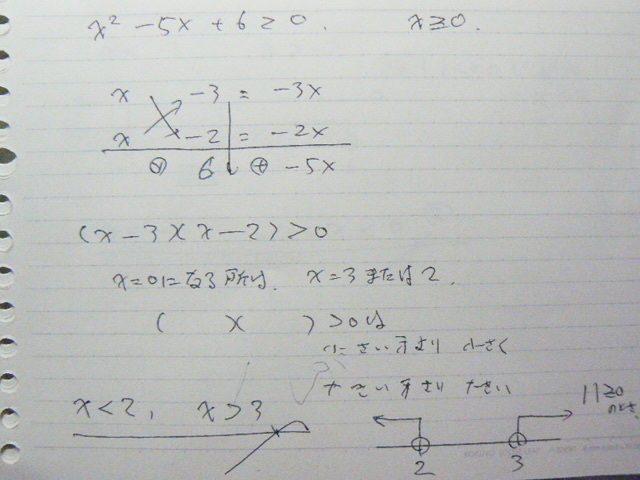 x² - 5x + 6 ≥ 0. x ≥ 0.
x -3 = -3x
x -2 = -2x
6 ⊕ -5x
(x-3)(x-2)>0
x=0になる所は、x=3または2.
( )( )>0は
小さい方より 小さく
大きい方より 大きい
x<2, x>3
≥0
のとき
2 3